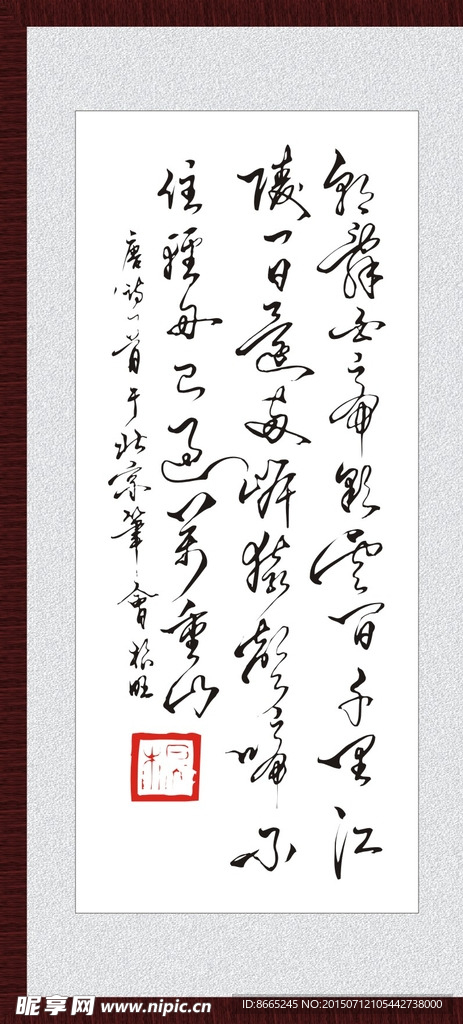 朝辭白帝彩雲間千里江
陵一日還兩岸猿聲啼不
住輕舟已過萬重山
唐詩一首于北京筆會
昵享网 www.nipic.cn
ID:8665245 NO:20150712105442738000